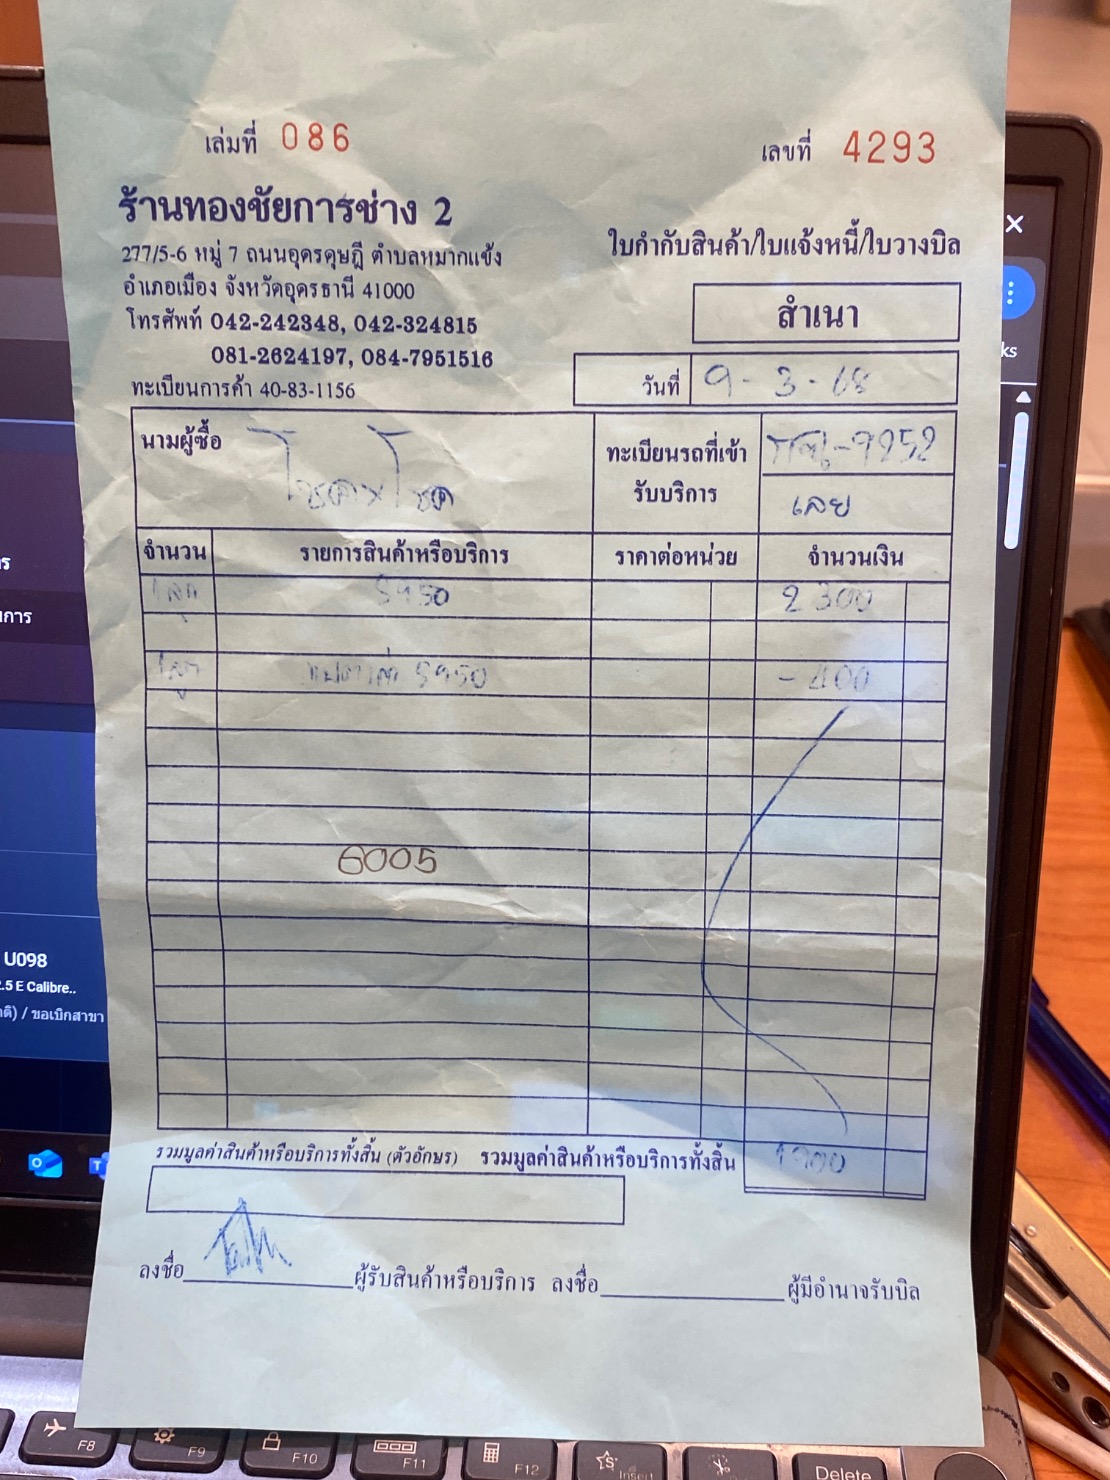 เล่มที่ 086
เลขที่ 4293
ร้านทองชัยการช่าง 2
277/5-6 หมู่ 7 ถนนอุดรดุษฎี ตำบลหมากแข้ง
อำเภอเมือง จังหวัดอุดรธานี 41000
โทรศัพท์ 042-242348, 042-324815
081-2624197, 084-7951516
ทะเบียนการค้า 40-83-1156
ใบกำกับสินค้า/ใบแจ้งหนี้/ใบวางบิล
สำเนา
วันที่ 9-3-68
นามผู้ซื้อ
ทะเบียนรถที่เข้ารับบริการ -9252
เลย
จำนวน รายการสินค้าหรือบริการ ราคาต่อหน่วย จำนวนเงิน
1 ลูก 5950 2300
1 ลูก 5950 -400
6005
รวมมูลค่าสินค้าหรือบริการทั้งสิ้น (ตัวอักษร) รวมมูลค่าสินค้าหรือบริการทั้งสิ้น 1900
ลงชื่อ ผู้รับสินค้าหรือบริการ ลงชื่อ ผู้มีอำนาจรับบิล
ks
การ
U098
2.5 E Calibre..
/ ขอเบิกสาขา
F8
F9
F10
F11
F12
Insert
Delete